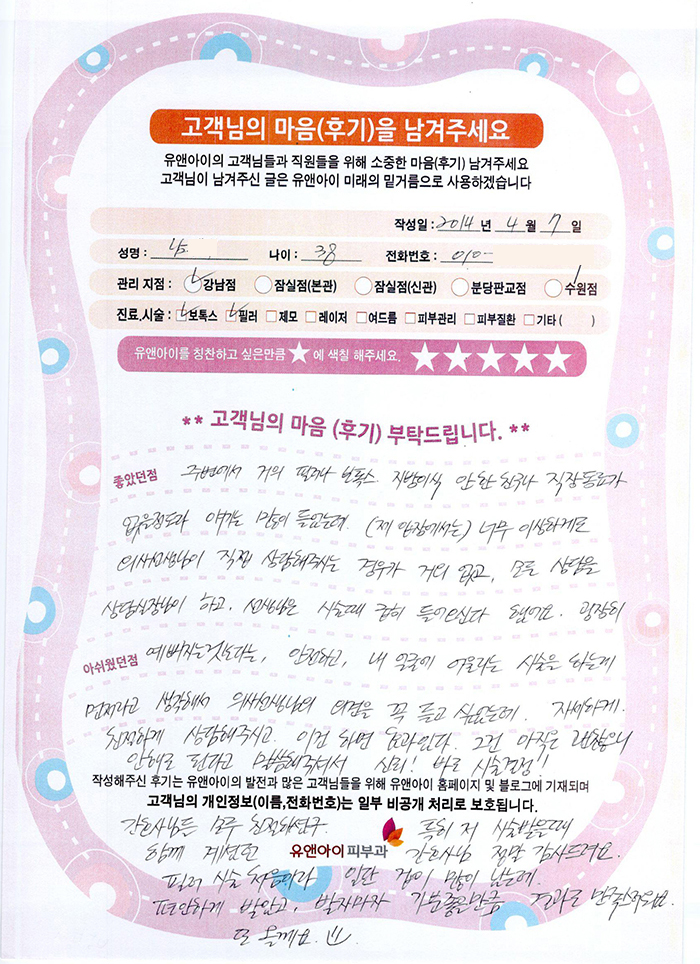 고객님의 마음(후기)을 남겨주세요
유앤아이의 고객님들과 직원들을 위해 소중한 마음(후기) 남겨주세요
고객님이 남겨주신 글은 유앤아이 미래의 밑거름으로 사용하겠습니다
작성일 : 2014 년 4 월 7 일
성명 : 나 나이 : 38 전화번호 : 010-
관리 지점 : 강남점 잠실점(본관) 잠실점(신관) 분당판교점 수원점
진료.시술 : 보톡스 필러 제모 레이저 여드름 피부관리 피부질환 기타 ( )
유앤아이를 칭찬하고 싶은만큼 ★ 에 색칠 해주세요. ★★★★★
** 고객님의 마음 (후기) 부탁드립니다. **
좋았던점 주변에서 거의 필러나 보톡스. 지방이식 안 한 친구나 직장동료가
없을정도라 얘기는 많이 들었는데. (제 입장에서는) 너무 이상하게도
의사선생님이 직접 상담해주시는 경우가 거의 없고, 모든 상담을
상담실장님이 하고. 선생님은 시술때 급히 들어오신다 했어요. 굉장히
아쉬웠던점 예뻐지는것보다는, 안전하고, 내 얼굴에 어울리는 시술을 하는게
먼저라고 생각해서 의사선생님의 의견을 꼭 듣고 싶었는데. 자세하게.
친절하게 상담해주시고. 이건 하면 효과있다. 그건 아직은 괜찮으니
안해도 된다고 말씀해주셔서 신뢰! 바로 시술결정!!
작성해주신 후기는 유앤아이의 발전과 많은 고객님들을 위해 유앤아이 홈페이지 및 블로그에 기재되며
고객님의 개인정보(이름,전화번호)는 일부 비공개 처리로 보호됩니다.
간호사님들 모두 친절하시구. 특히 저 시술받을때
함께 계셨던 유앤아이피부과 간호사님 정말 감사드려요.
필러 시술 처음이라 일단 겁이 많이 났는데.
편안하게 받았고, 받자마자 기분좋을만큼 결과도 만족스러워요.
또 올께요. ^^